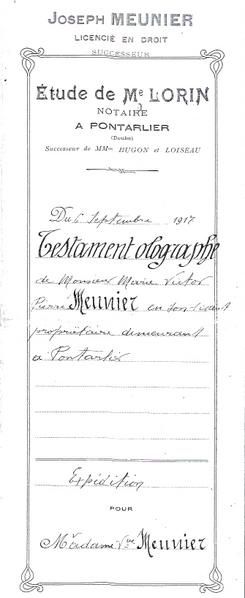 JOSEPH MEUNIER
LICENCIÉ EN DROIT
SUCCESSEUR
Étude de Me LORIN
NOTAIRE
A PONTARLIER
(Doubs)
Successeur de MMes HUGON et LOISEAU
Du 6 Septembre 1917
Testament olographe
de Monsieur Marie Victor
Pierre Meunier en son vivant
propriétaire demeurant
à Pontarlier
Expédition
POUR
Madame Vve Meunier